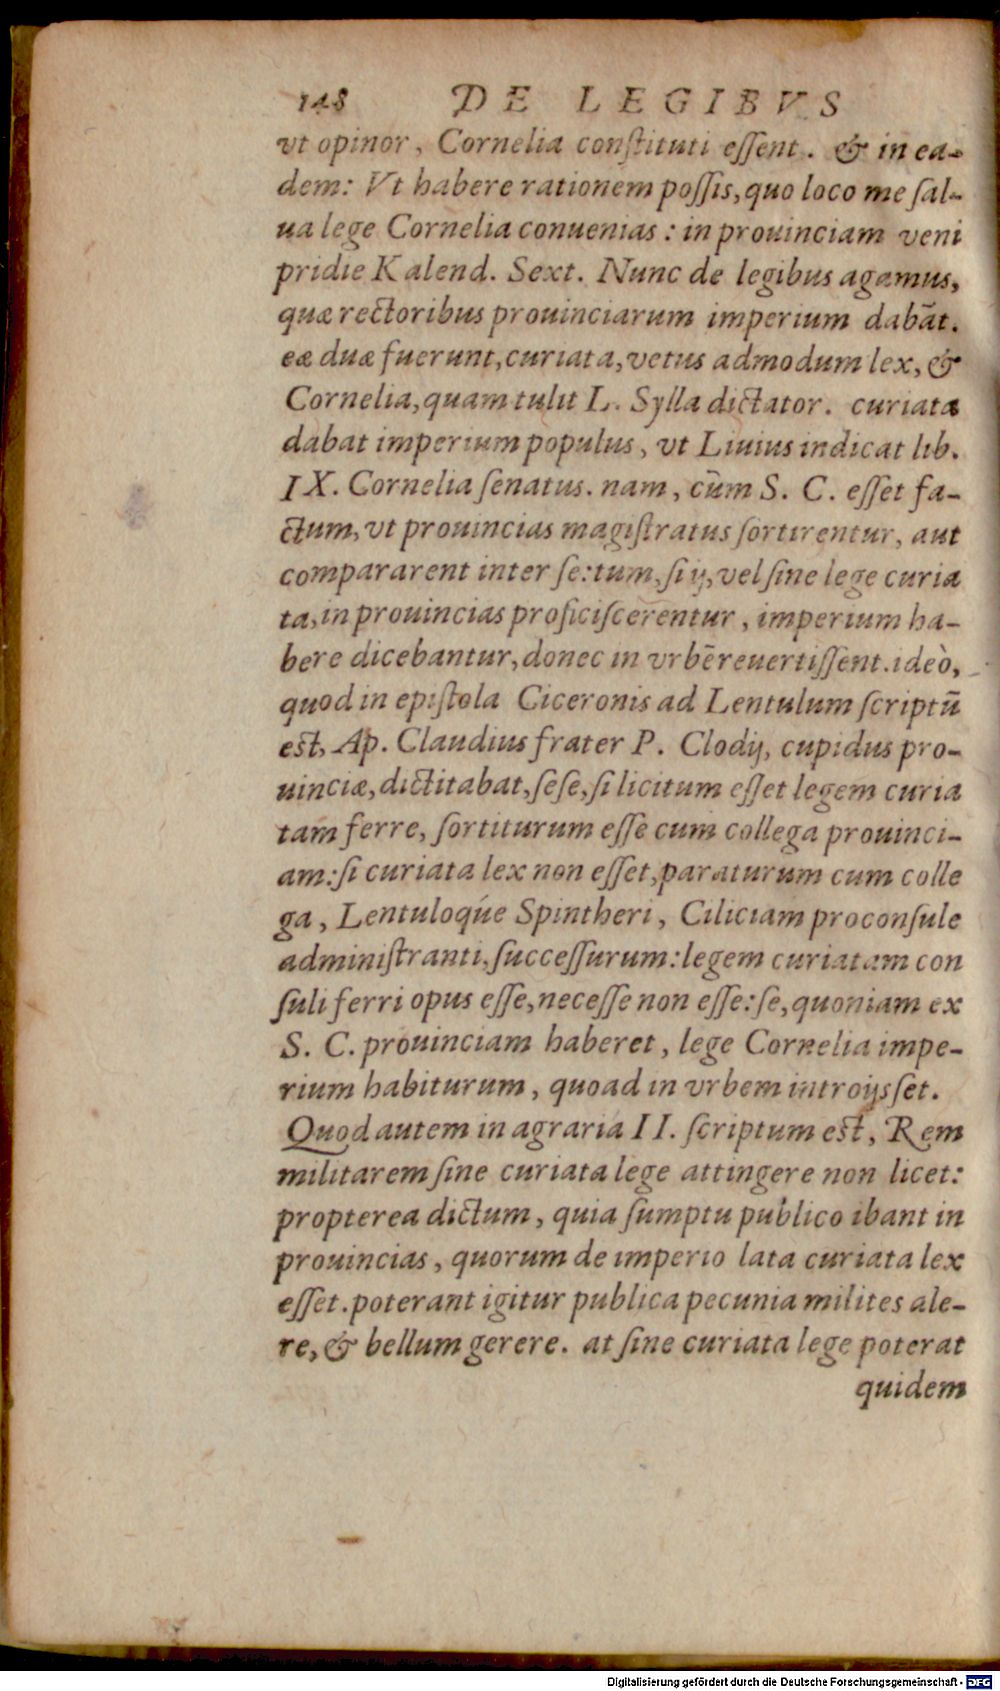 148 DE LEGIBVS
vt opinor, Cornelia conſtituti eſſent. & in ea-
dem: Vt habere rationem poſſis, quo loco me ſal-
ua lege Cornelia conuenias: in prouinciam veni
pridie Kalend. Sext. Nunc de legibus agamus,
quæ rectoribus prouinciarum imperium dabāt.
eæ duæ fuerunt, curiata, vetus admodum lex, &
Cornelia, quam tulit L. Sylla dictator. curiata
dabat imperium populus, vt Liuius indicat lib.
IX. Cornelia ſenatus. nam, cùm S. C. eſſet fa-
ctum, vt prouincias magiſtratus ſortirentur, aut
compararent inter ſe: tum, ſi ij, vel ſine lege curia
ta, in prouincias proficiſcerentur, imperium ha-
bere dicebantur, donec in vrbē reuertiſſent. ideò,
quod in epiſtola Ciceronis ad Lentulum ſcriptū
eſt, Ap. Claudius frater P. Clodij, cupidus pro-
uinciæ, dictitabat, ſeſe, ſi licitum eſſet legem curia
tam ferre, ſortiturum eſſe cum collega prouinci-
am: ſi curiata lex non eſſet, paraturum cum colle
ga, Lentuloq́ue Spintheri, Ciliciam proconſule
adminiſtranti, ſucceſſurum: legem curiatam con
ſuli ferri opus eſſe, neceſſe non eſſe: ſe, quoniam ex
S. C. prouinciam haberet, lege Cornelia impe-
rium habiturum, quoad in vrbem introijsſet.
Quod autem in agraria II. ſcriptum eſt, Rem
militarem ſine curiata lege attingere non licet:
propterea dictum, quia ſumptu publico ibant in
prouincias, quorum de imperio lata curiata lex
eſſet. poterant igitur publica pecunia milites ale-
re, & bellum gerere. at ſine curiata lege poterat
quidem
Digitalisierung gefördert durch die Deutsche Forschungsgemeinschaft - DFG